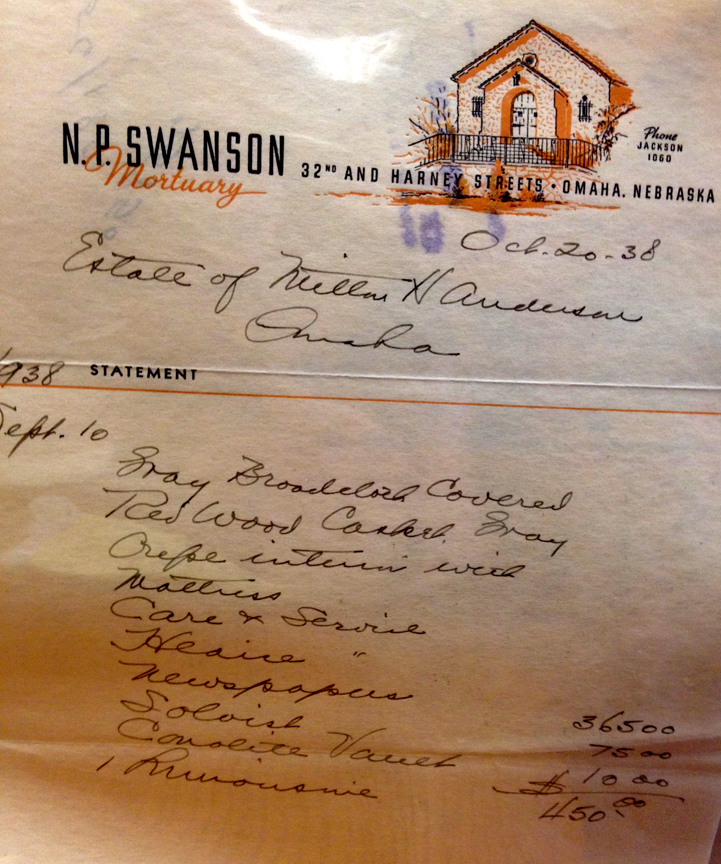 N. P. SWANSON
Mortuary
32ND AND HARNEY STREETS • OMAHA, NEBRASKA
Phone
JACKSON
1060
Oct. 20-38
Estate of Milton H Anderson
Omaha
1938 STATEMENT
Sept. 10
Gray Broadcloth Covered
Red Wood Casket. Gray
Crepe interior with
Mattress
Care & Service
Hearse "
Newspapers
Soloist 36500
Conolite Vault 7500
1 Limousine $ 1000
450.00